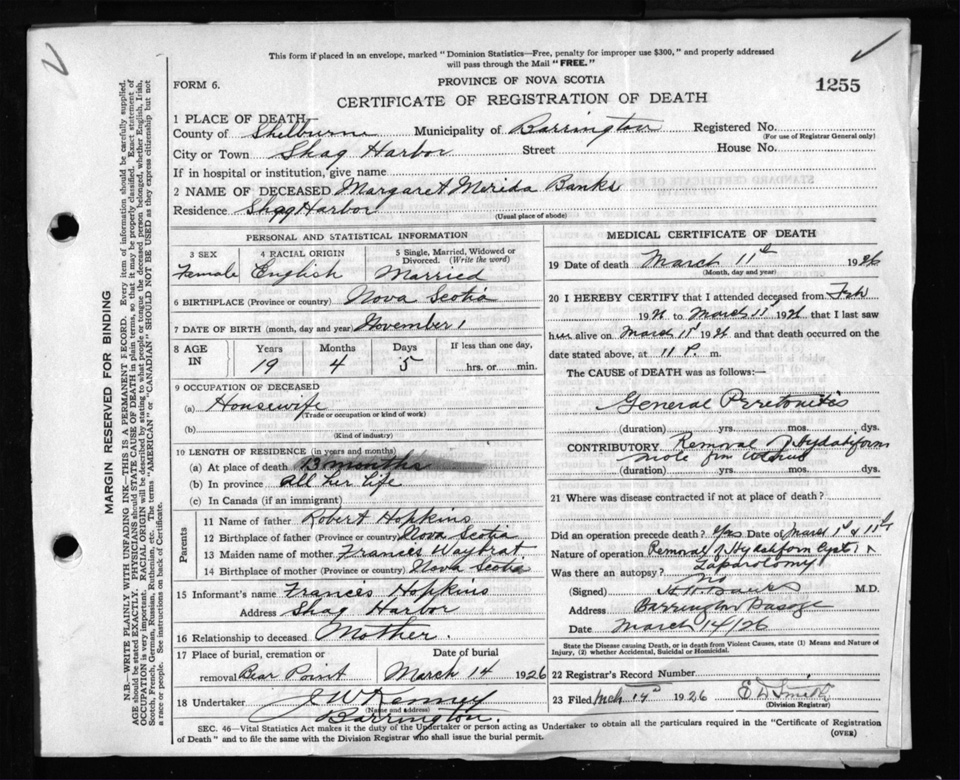 This form if placed in an envelope, marked "Dominion Statistics—Free, penalty for improper use $300," and properly addressed
will pass through the Mail "FREE."
FORM 6.
PROVINCE OF NOVA SCOTIA
1255
CERTIFICATE OF REGISTRATION OF DEATH
1 PLACE OF DEATH
County of Shelburne Municipality of Barrington Registered No.
(For use of Registrar General only)
City or Town Shag Harbor Street House No.
If in hospital or institution, give name
2 NAME OF DECEASED Margaret Merida Banks
Residence Shag Harbor
(Usual place of abode)
PERSONAL AND STATISTICAL INFORMATION
3 SEX
Female
4 RACIAL ORIGIN
English
5 Single, Married, Widowed or
Divorced. (Write the word)
Married
6 BIRTHPLACE (Province or country) Nova Scotia
7 DATE OF BIRTH (month, day and year) November 1
8 AGE
IN
Years Months Days If less than one day,
19 4 5 hrs. or min.
9 OCCUPATION OF DECEASED
(a) Housewife
(Trade or occupation or kind of work)
(b)
(Kind of industry)
10 LENGTH OF RESIDENCE (in years and months)
(a) At place of death 13 months
(b) In province all her life
(c) In Canada (if an immigrant)
Parents
11 Name of father Robert Hopkins
12 Birthplace of father (Province or country) Nova Scotia
13 Maiden name of mother Frances Waybrat
14 Birthplace of mother (Province or country) Nova Scotia
15 Informant's name Frances Hopkins
Address Shag Harbor
16 Relationship to deceased Mother.
17 Place of burial, cremation or Date of burial
removal Bear Point March 14 1926
18 Undertaker J W Kenney
(Name and address)
Barrington.
MEDICAL CERTIFICATE OF DEATH
19 Date of death March 11th 1926
(Month, day and year)
20 I HEREBY CERTIFY that I attended deceased from Feb
1926 to March 11 1926 that I last saw
her alive on March 11 1926 and that death occurred on the
date stated above, at 11 P. m.
The CAUSE of DEATH was as follows:—
General Peretonites
(duration) yrs. mos. dys.
CONTRIBUTORY Removal of Hydatiform
mole
(duration) yrs. mos. dys.
21 Where was disease contracted if not at place of death?
Did an operation precede death? Yes Date of March 1st & 11th
Nature of operation Removal of Hydatiform Cyst &
Laparotomy
Was there an autopsy? No
(Signed) M.D.
Address Barrington Passage
Date March 14/26
State the Disease causing Death, or in death from Violent Causes, state (1) Means and Nature of
Injury, (2) whether Accidental, Suicidal or Homicidal.
22 Registrar's Record Number
23 Filed Mch 14 1926 E D Smith
(Division Registrar)
SEC. 46—Vital Statistics Act makes it the duty of the Undertaker or person acting as Undertaker to obtain all the particulars required in the "Certificate of Registration
of Death" and to file the same with the Division Registrar who shall issue the burial permit.
(OVER)
MARGIN RESERVED FOR BINDING
N.B.—WRITE PLAINLY WITH UNFADING INK—THIS IS A PERMANENT RECORD. Every item of information should be carefully supplied.
AGE should be stated EXACTLY. PHYSICIANS should STATE CAUSE OF DEATH in plain terms, so that it may be properly classified. Exact statement of
OCCUPATION is very important. RACIAL ORIGIN will be described by stating to what people or tongue the deceased person belonged, whether English, Irish,
Scotch, French, German, Russian, Ruthenian, etc. The terms "AMERICAN" or "CANADIAN" SHOULD NOT BE USED as they express citizenship but not
a race or people. See instructions on back of Certificate.